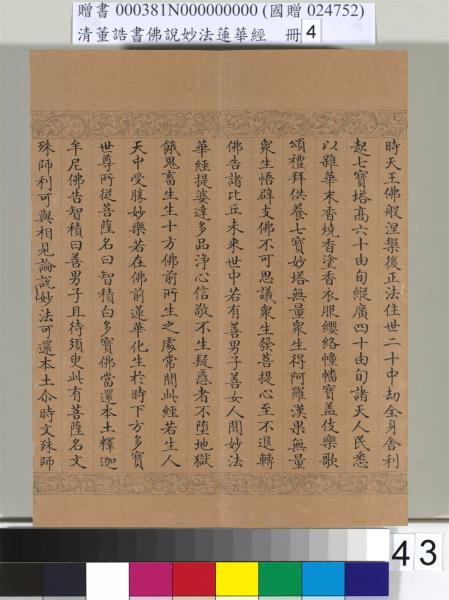 贈書 000381N000000000 (國贈 024752)
清董誥書佛說妙法蓮華經 冊 4
時天王佛般涅槃後正法住世二十中劫全身舍利
起七寶塔高六十由旬縱廣四十由旬諸天人民悉
以雜華末香燒香塗香衣服纓絡幢幡寶蓋伎樂歌
頌禮拜供養七寶妙塔無量衆生得阿羅漢果無量
衆生悟辟支佛不可思議衆生發菩提心至不退轉
佛告諸比丘未來世中若有善男子善女人聞妙法
華經提婆達多品淨心信敬不生疑惑者不墮地獄
餓鬼畜生生十方佛前所生之處常聞此經若生人
天中受勝妙樂若在佛前蓮華化生於時下方多寶
世尊所從菩薩名曰智積白多寶佛當還本土釋迦
牟尼佛告智積曰善男子且待須臾此有菩薩名文
殊師利可與相見論說妙法可還本土尒時文殊師
43